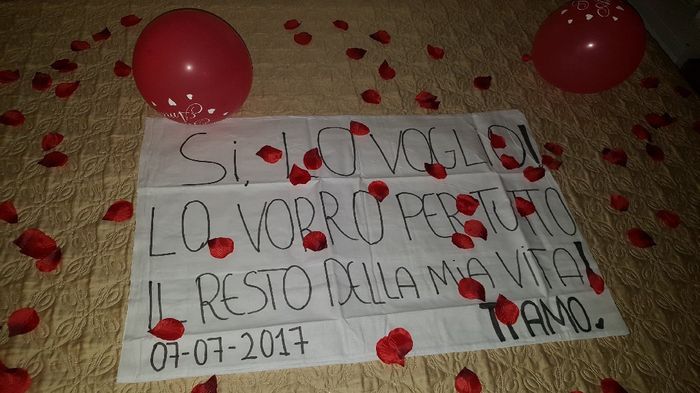 Si, LO VOGLIO!
LO VORRÓ PER TUTTO
IL RESTO DELLA MIA VITA!
TI AMO.
07-07-2017